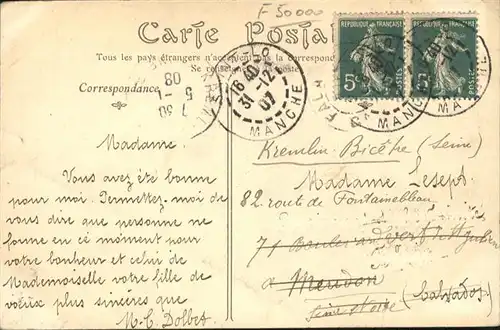 F 50000
Carte Postale
Tous les pays étrangers n'acceptent pas la correspondance
Se renseigner
Correspondance
REPUBLIQUE FRANÇAISE
REPUBLIQUE FRANÇAISE
5c
5c
POSTES
POSTES
16 40
31 - 12
07
MANCHE
7 30
5 - 1
08
MANCHE
MANCHE
Madame.
Vous avez été bonne
pour moi. Permettez-moi de
vous dire que personne ne
forme en ce moment pour
votre bonheur et celui de
Mademoiselle votre fille de
vœux plus sincères que
M.-C. Dolbet
Kremlin-Bicêtre (Seine)
Madame Lesept
82 route de Fontainebleau
71 Boulevard
à Meudon
Seine et Oise
(Calvados)